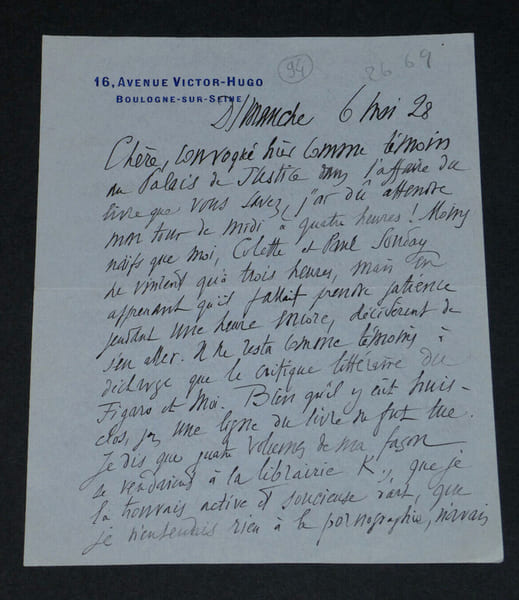 16, AVENUE VICTOR-HUGO
BOULOGNE-SUR-SEINE
94
26 69
Dimanche 6 mai 28
Chère, convoqué hier comme témoin
au Palais de Justice dans l'affaire du
livre que vous savez, j'ai dû attendre
mon tour de midi à quatre heures ! Moins
naïfs que moi, Colette et Paul Souday
ne vinrent qu'à trois heures, mais en
apprenant qu'il fallait prendre patience
pendant une heure encore, décidèrent de
s'en aller. Il ne resta comme témoins à
décharge que le critique littéraire du
Figaro et moi. Bien qu'il y eût huis-
clos, pas une ligne du livre ne fut lue.
Je dis que quatre volumes de ma façon
se vendaient à la librairie K., que je
la trouvais active et soucieuse d'art, que
je n'entendais rien à la pornographie, n'avais